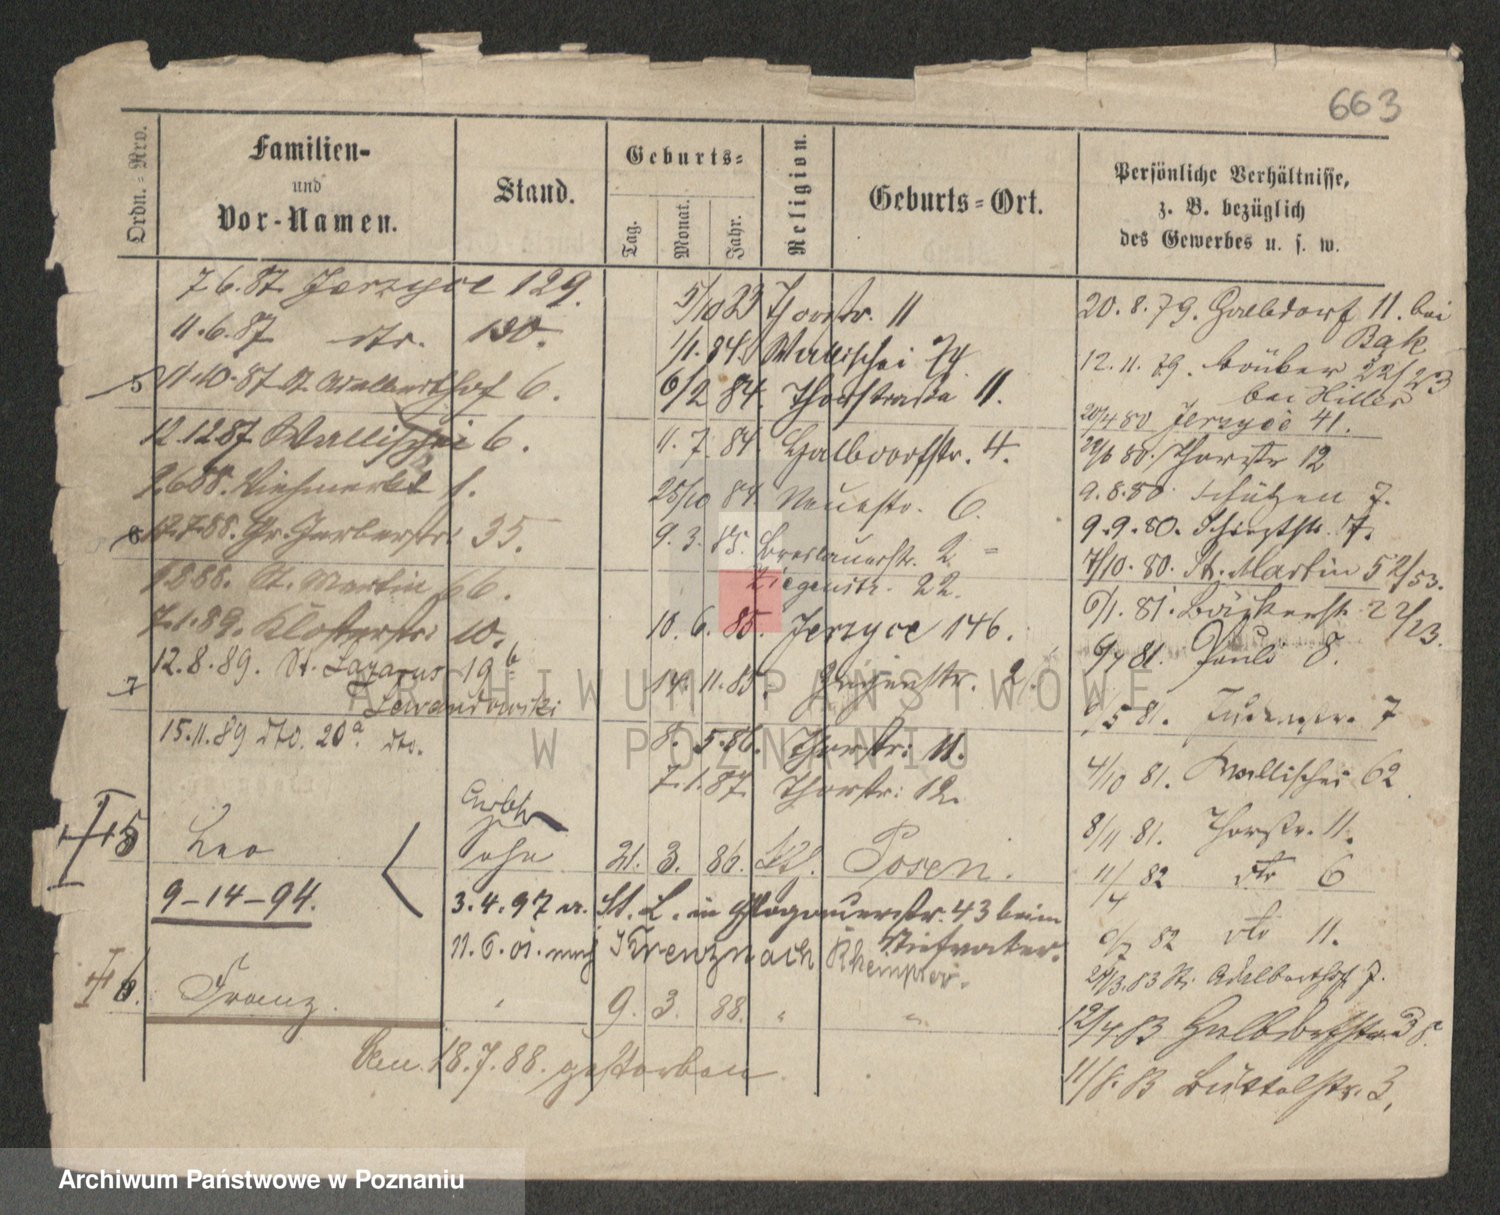 663
Ordn.=Nrn.
Familien-
und
Vor-Namen.
Stand.
Geburts=
Tag.
Monat.
Jahr.
Religion.
Geburts=Ort.
Persönliche Verhältnisse,
z. B. bezüglich
des Gewerbes u. s. w.
7.6.87. Jerzyce 129.
11.6.87 dto. 130.
5 11.10.87 St. Adalberthof 6.
12.12.87 Wallischei 6.
2.6.88. Viehmarkt 1.
6 12.7.88. Gr. Gerberstr. 35.
1.8.88. St. Martin 66.
7.1.89. Klosterstr. 10.
12.8.89. St. Lazarus 19b
7 Lewandowski
15.11.89 dto. 20a. dto.
5/10 83 Thorstr. 11
1/1. 84. Wallischei 74
6/2 84. Thorstraße 11.
11. 7. 84. Halbdorfstr. 4.
25/10 84. Neuestr. 6.
9. 3. 85. Breslauerstr. 2 =
Ziegenstr. 22.
10. 6. 85. Jerzyce 146.
14. 11. 85. 2.
8. 5. 86. Thorstr. 11.
7. 1. 87. Thorstr. 12.
20. 8. 79. Halbdorf 11. bei
Bak
12. 11. 79. 22/23
bei Hiller
20/4 80 Jerzyce 41.
80. Thorstr 12
9. 8. 80. Schützen 7.
9. 9. 80. 7.
7/10. 80. St. Martin 52/53.
6/1. 81. Bäckerstr. 22/23.
81. Pauli 8.
5 81. 7
4/10 81. Wallischei 62
8/11 81. Thorstr. 11.
11/4 82 dto 6
82 dto 11.
83 St. Adalberthof 7.
12/4 83 Halbdorfstr 38.
11/8. 83 Büttelstr. 3,
5 Leo Sohn 21. 3. 86. Posen.
9-14-94. 3.4.97 St. L. in Glogauerstr. 43 beim
Stiefvater.
11.6.01. nach Kreuznach
6. Franz. " 9. 3. 88. " "
Den 18.7.88. gestorben.
ARCHIWUM PAŃSTWOWE
W POZNANIU
Archiwum Państwowe w Poznaniu